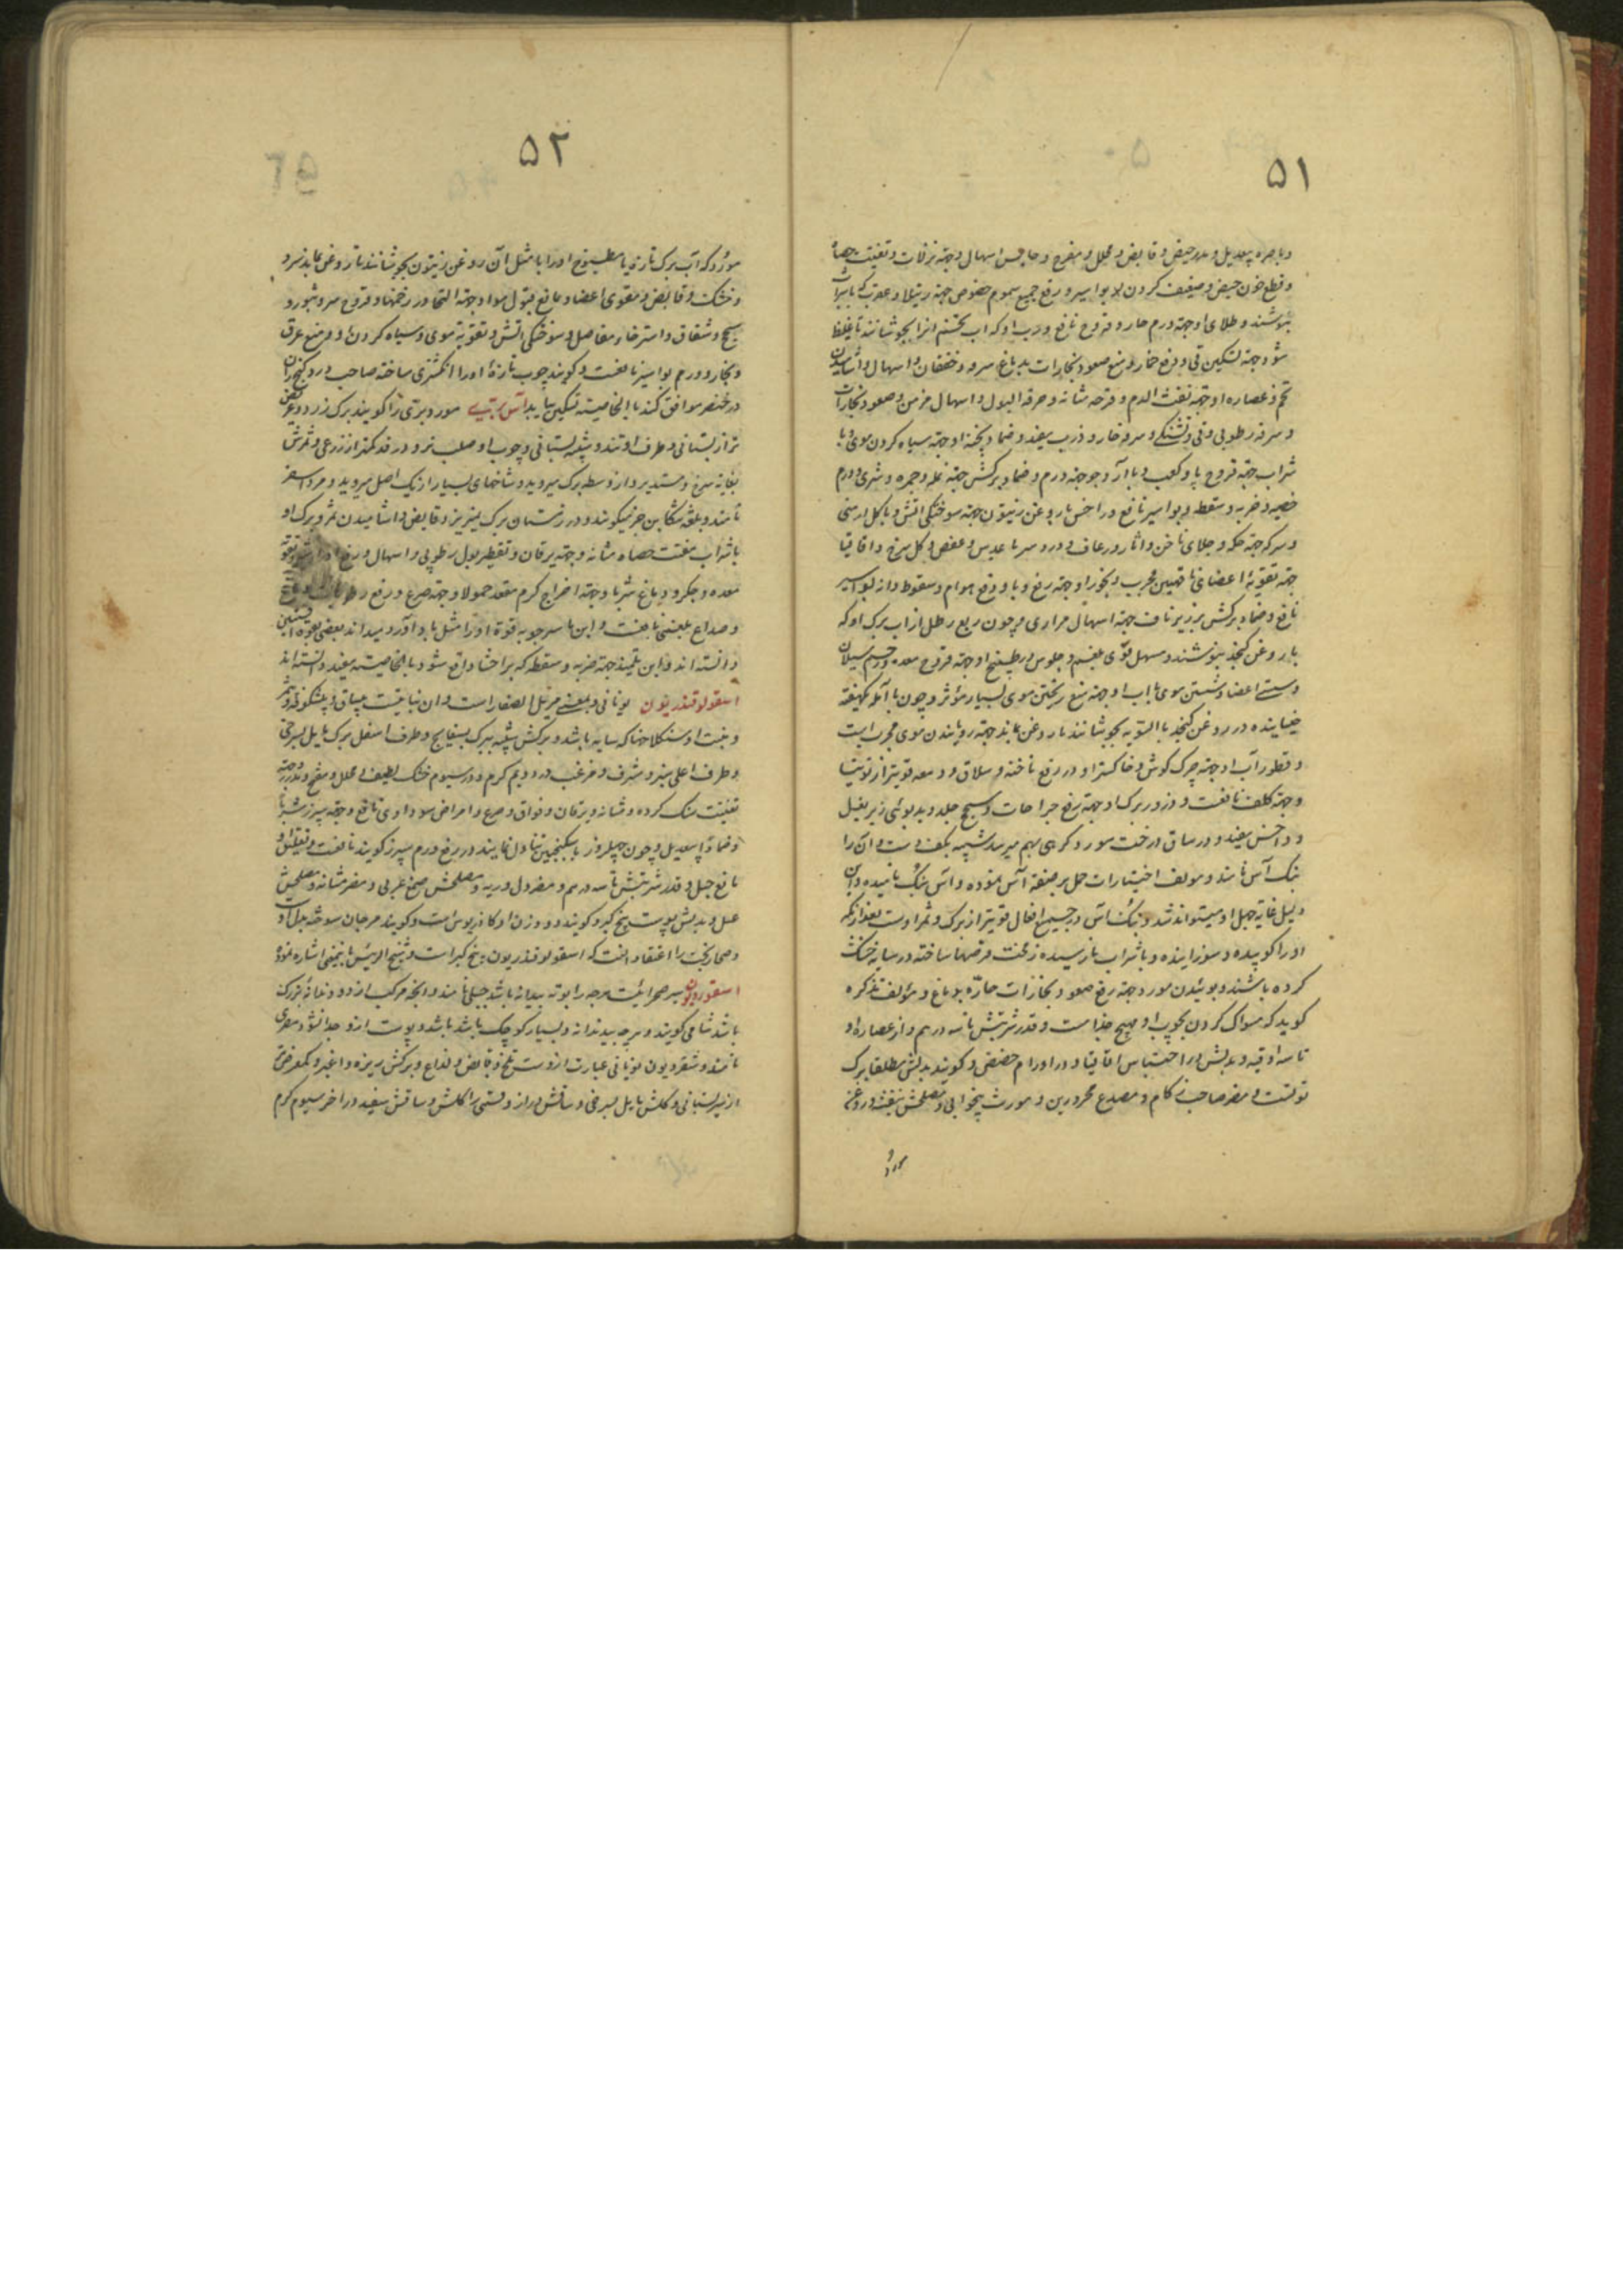 ۵۱
و باصره بیعدیل و مدر حیض و قابض و محلل و مفرح و حابس اسهال و جهة نزلات و تفتیت حصاة
و قطع خون حیض و ضعیف کردن بواسیر و رفع جمیع سموم خصوص جهة رتیلا و عقرب که با شراب
بنوشند و طلای او جهة ورم حار و قروح نافع و رب او که آب تخم انرا بجوشانند تا غلیظ
شود جهة تسکین قی و رفع خمار و منع صعود بخارات بدماغ و سرفه و خفقان و اسهال و آشامیدن
تخم و عصاره او جهة نفث الدم و قرحه مثانه و حرقة البول و اسهال مزمن و صعود بخارات
و سرفه رطوبی و قی و تشنگی و سرفه حار و ذرب مفید و ضماد پخته او جهة سیاه کردن موی و با
شراب جهة قروح پا و کعب و با آرد جو جهة ورم و ضماد برگش جهة نمله و حمره و شری و ورم
خصیه و ضربه و سقطه و بواسیر نافع و داخس با روغن زیتون جهة سوختگی آتش و با گل ارمنی
و سرکه جهة حکه و جلای ناخن و آثار و رعاف و درد سر با عدس و عفص و گل سرخ و اقاقیا
جهة تقویة اعضا مجرب و بخور او جهة رفع وبا و رفع هوام و سقوط دانه بواسیر
نافع و ضماد برگش بر زیر ناف جهة اسهال مراری و چون ربع رطل از آب برگ او که
با روغن کنجد بنوشند مسهل قوی بلغم و جلوس در طبیخ او جهة قروح معده و رحم و سیلان
و سستی اعضا و شستن موی با آب او جهة منع ریختن موی بسیار مؤثر و چون با آمله یکهفته
خیسانیده در روغن کنجد بالسویه بجوشانند تا روغن بماند جهة رویانیدن موی مجرب است
و قطور آب او جهة چرک گوش و خاکستر او در رفع ناخنه و سلاق و دمعه قویتر از توتیا
و جهة کلف نافعست و ذرور برگ او جهة رفع جراحات و سحج جلد و بدبوئی زیر بغل
و داخس مفید و در ساق درخت مورد گرهی بهم میرسد شبیه بکف دست و آن را
بنک آس نامند و مولف اختیارات حمل بر صیغه آس نموده و آس بنک نامیده و این
دلیل غایة جهل او میتواند شد و بنک آس در جمیع افعال قویتر از برگ و ثمر اوست بعد از آنکه
او را کوبیده و سوزانیده و با شراب نارسیده زمخت قرصها ساخته در سایه خشک
کرده باشند و بوئیدن مورد جهة رفع صعود بخارات حاره بدماغ و مؤلف تذکره
گوید که مسواک کردن بچوب او مهیج جذام است و قدر شربتش تا سه درهم و از عصاره او
تا سه اوقیه و بدلش در احتباس اقاقیا و در اورام حضض و گویند بدلش مطلقا برگ
توتست و مضر صاحب زکام و مصدع محرورین و مورث بیخوابی و مصلحش بنفشه و روغن
مورد
۵۲
مورد که آب برگ تازه یا مطبوخ او را با مثل آن روغن زیتون بجوشانند تا روغن بماند سرد
و خشک و قابض و مقوی اعضا و مانع قبول مواد و جهة التحام زخمها و قروح سر و بثور و
سحج و شقاق و استرخاء مفاصل و سوختگی آتش و تقویة موی و سیاه کردن او و منع عرق
و بخار و ورم بواسیر نافعست و گویند چوب تازه او را انگشتری ساخته صاحب درد کنج ران
در خنصر موافق کند بالخاصیه تسکین یابد آس بری مورد بری را گویند برگ زرد و عریض
تر از بستانی و طرف او تند و شبیه بستانی و چوب او صلب تر و در قد کمتر از ذرعی و ثمرش
بغایة سرخ و مستدیر و از وسط برگ میروید و شاخهای بسیار از یک اصل میروید و مرد اسفرم
نامند و بلغة تنکابن جز میگویند و در زمستان برگ نمیریزد و قابض و آشامیدن ثمر و برگ او
با شراب مفتت حصاة مثانه و جهة یرقان و تقطیر بول رطوبی و اسهال و رفع
معده و جگر و دماغ شربا و جهة اخراج کرم مقعد حمولا و جهة صرع و رفع رطوبات
و صداع بلغمی نافعست و ابن ماسرجویه قوة او را مثل بادآورد میداند
دانسته اند و ابن تلمیذ جهة ضربه و سقطه که بر احشا واقع شود بالخاصیه مفید دانسته اند
اسقولوقندریون یونانی و بمعنی مزیل الصفار است و آن نباتیست بیساق و بیشکوفه و ثمر
و منبت او سنگلاخها که سایه باشد و برگش شبیه ببرگ بسفایج و طرف اسفل برگ مایل بسرخی
و طرف اعلی سبز و مشرف و مزغب در دویم گرم و در سیوم خشک لطیف و محلل و مفتح و مدر و جهة
تفتیت سنگ گرده و مثانه و یرقان و فواق و صرع و امراض سوداوی نافع و جهة سپرز شربا
و ضمادا بیعدیل و چون چهل روز با سکنجبین تناول نمایند در رفع ورم سپرز گویند نافعست و تعلیق او
مانع حبل و قدر شربتش تا سه درهم و مضر دل و ریه و مصلحش صمغ عربی و مضر مثانه و مصلحش
عسل و بدلش پوست بیخ کبر و گویند دو وزن او کمادریوس است و گویند مرجان سوخته بدل او
و صهاربخت را اعتقاد آنست که اسقولوقندریون بیخ کبر است و شیخ الرئیس باینمعنی اشاره نموده
اسقوردیون سیر صحرائیست هر چه را بوته بیدانه باشد جبلی نامند و آنچه مرکب از دو دندانه بزرگ
باشد شامی گویند و هر چه بیدندانه و بسیار کوچک باشد و پوست ازو جدا نشود مصری
نامند و شقردیون یونانی عبارت ازوست تلخ و قابض و لذاع و برگش ریزه و اغبر و کم عرض
از سیر بستانی و گلش مایل بسرخی و ساقش دراز و بستبرا گلش و ساقش سفید در آخر سیوم گرم